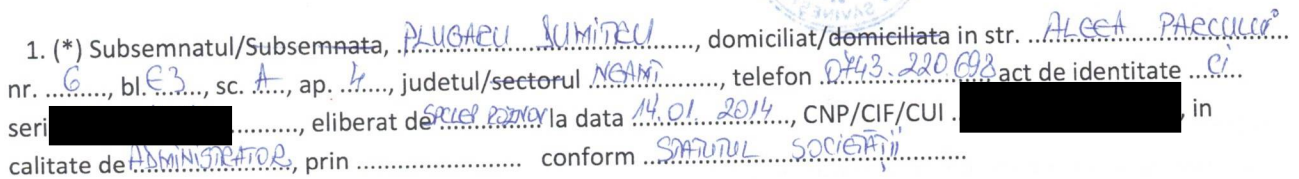 1. (*) Subsemnatul/Subsemnata, PLUGARU DUMITRU, domiciliat/domiciliata in str. ALEEA PARCULUI
nr. 6, bl. E3, sc. A, ap. 4, judetul/sectorul NEAMT, telefon 0743.220.698 act de identitate CI
seri, eliberat de SPCLEP ROZNOV la data 14.01.2014, CNP/CIF/CUI, in
calitate de ADMINISTRATOR, prin .................... conform STATUTUL SOCIETĂȚII